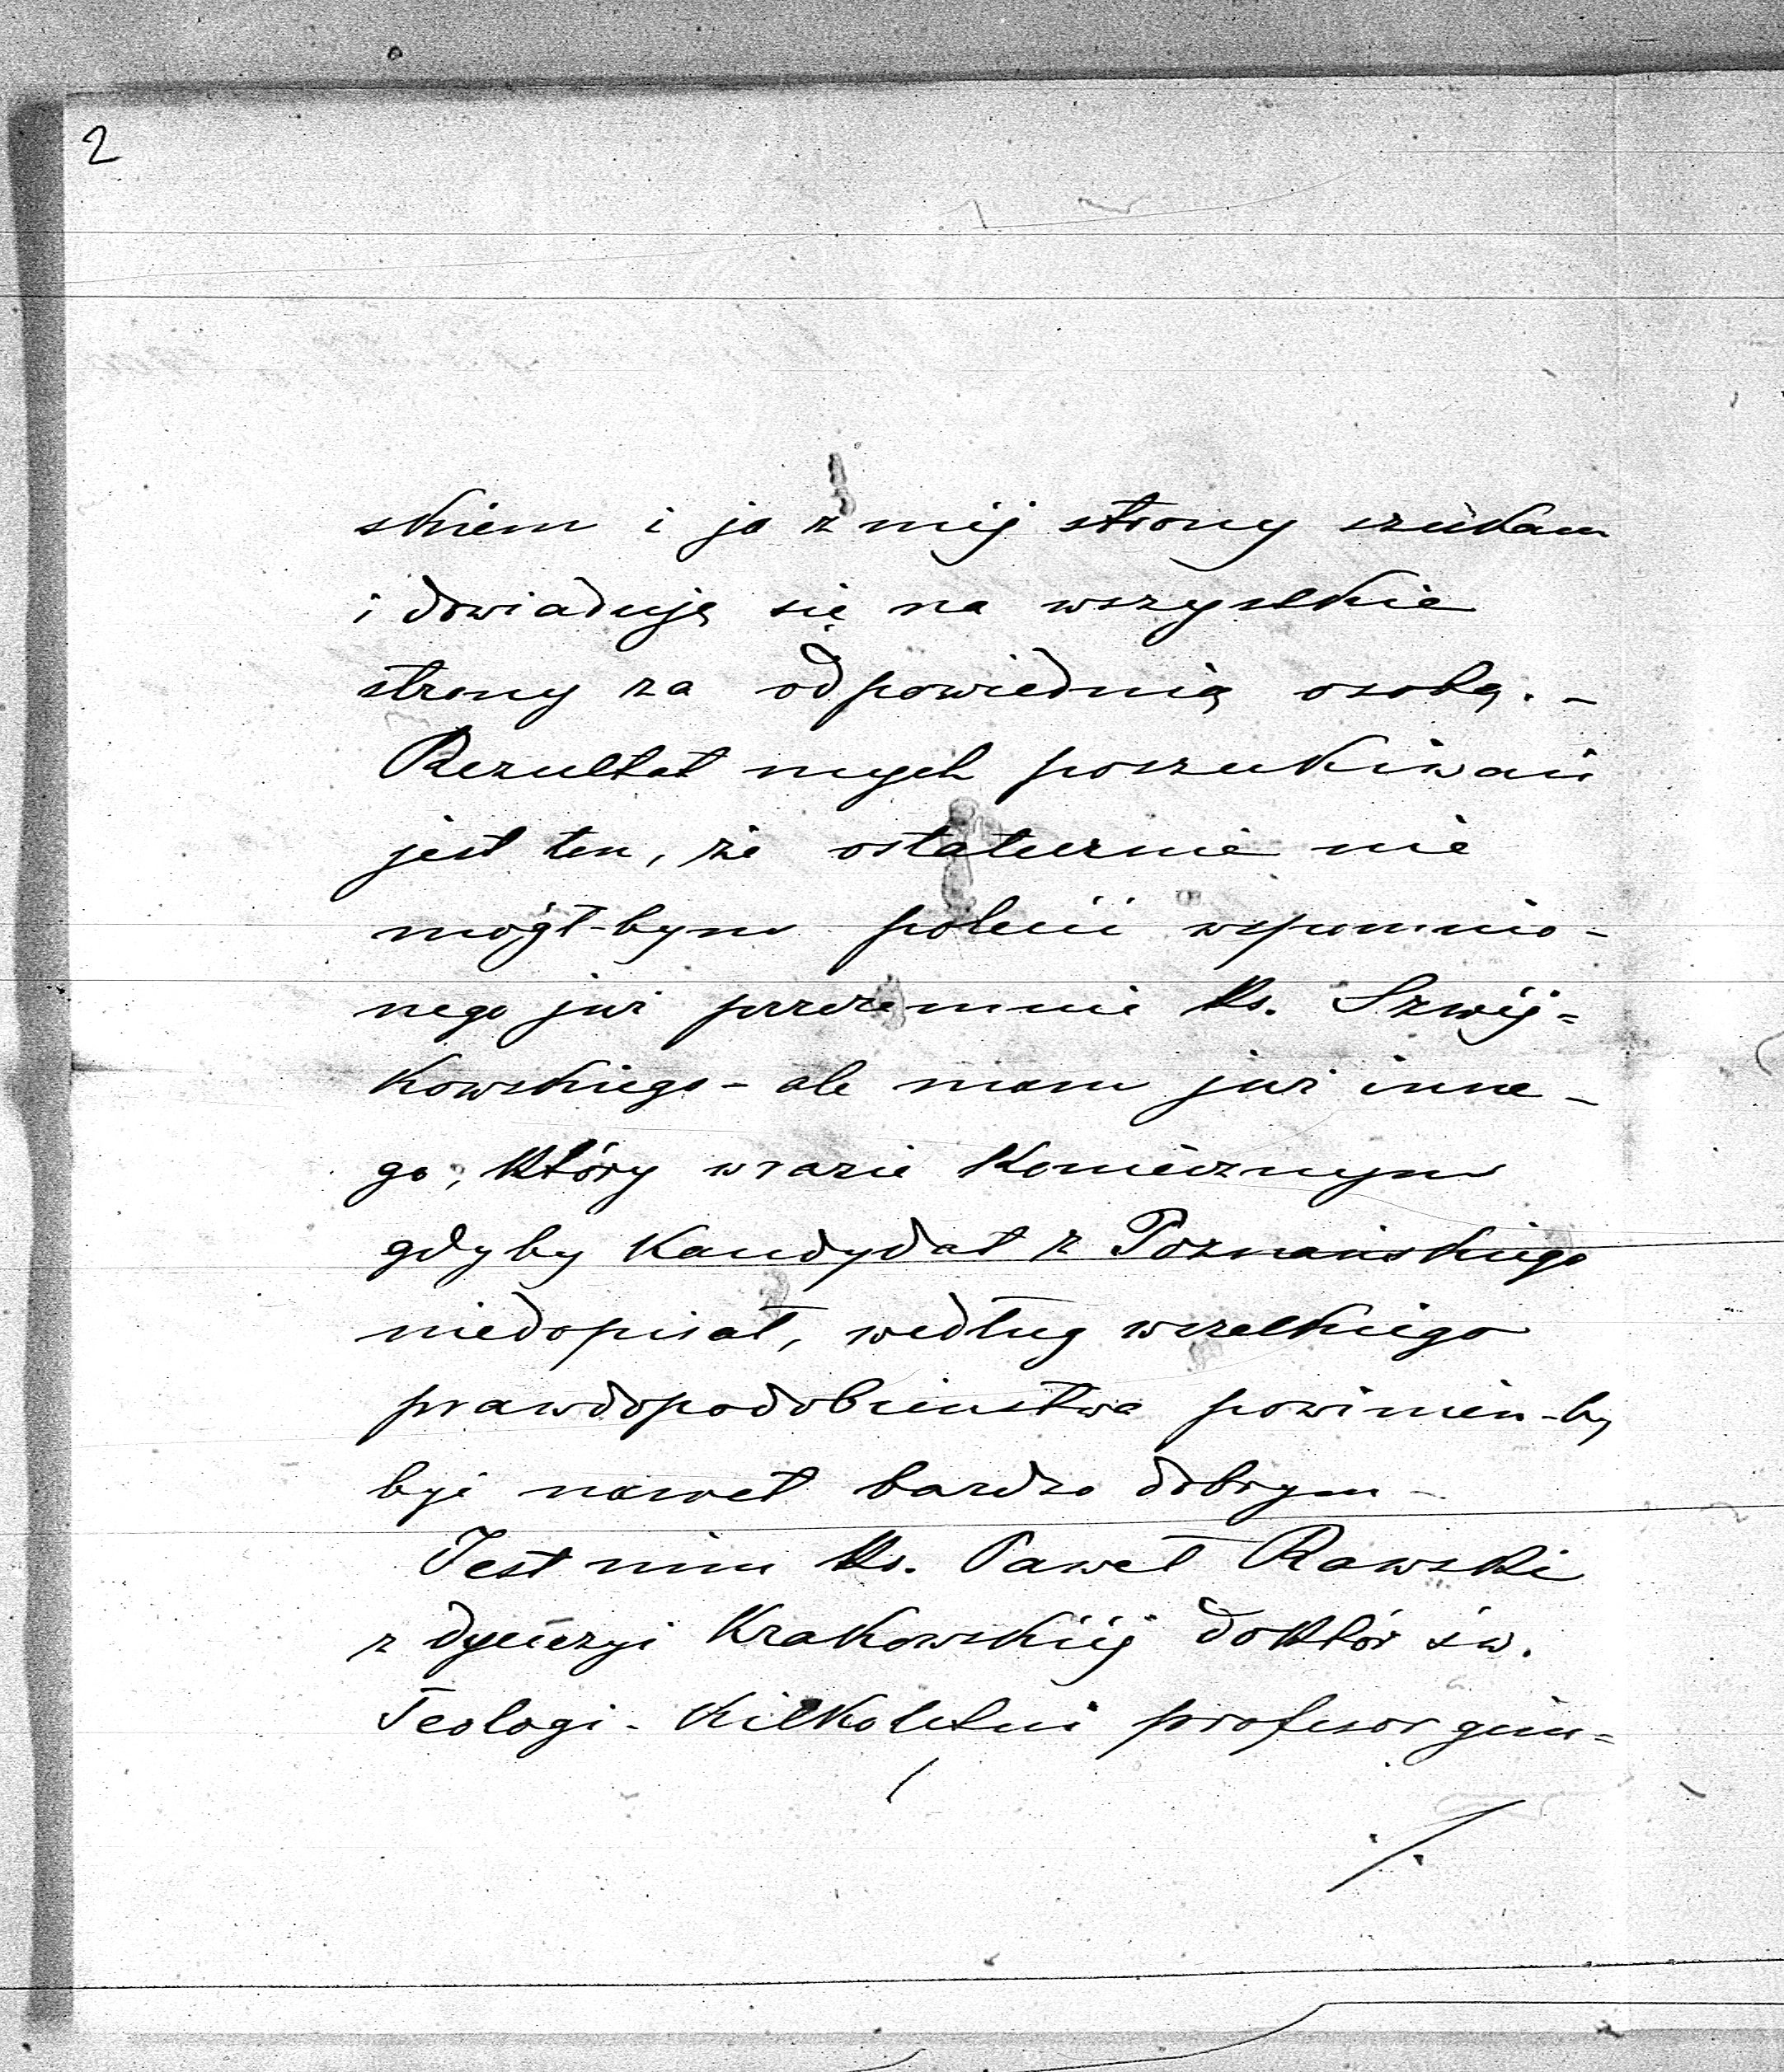 2
skiem i ja z mej strony szukam
i dowiaduję się na wszystkie
strony za odpowiednią osobą. -
Rezultat mych poszukiwań
jest ten, że ostatecznie nie
mógł-bym polecić wspomnio-
nego już przezemnie Ks. Szwej=
kowskiego - ale mam już inne-
go, który w razie koniecznym
gdyby kandydat z Poznańskiego
niedopisał, według wszelkiego
prawdopodobieństwa powinien-by
być nawet bardzo dobrym -
Jest nim Ks. Paweł Rawski
z dyecezyi Krakowskiej doktór św.
Teologi - kilkoletni profesor gim=
./.